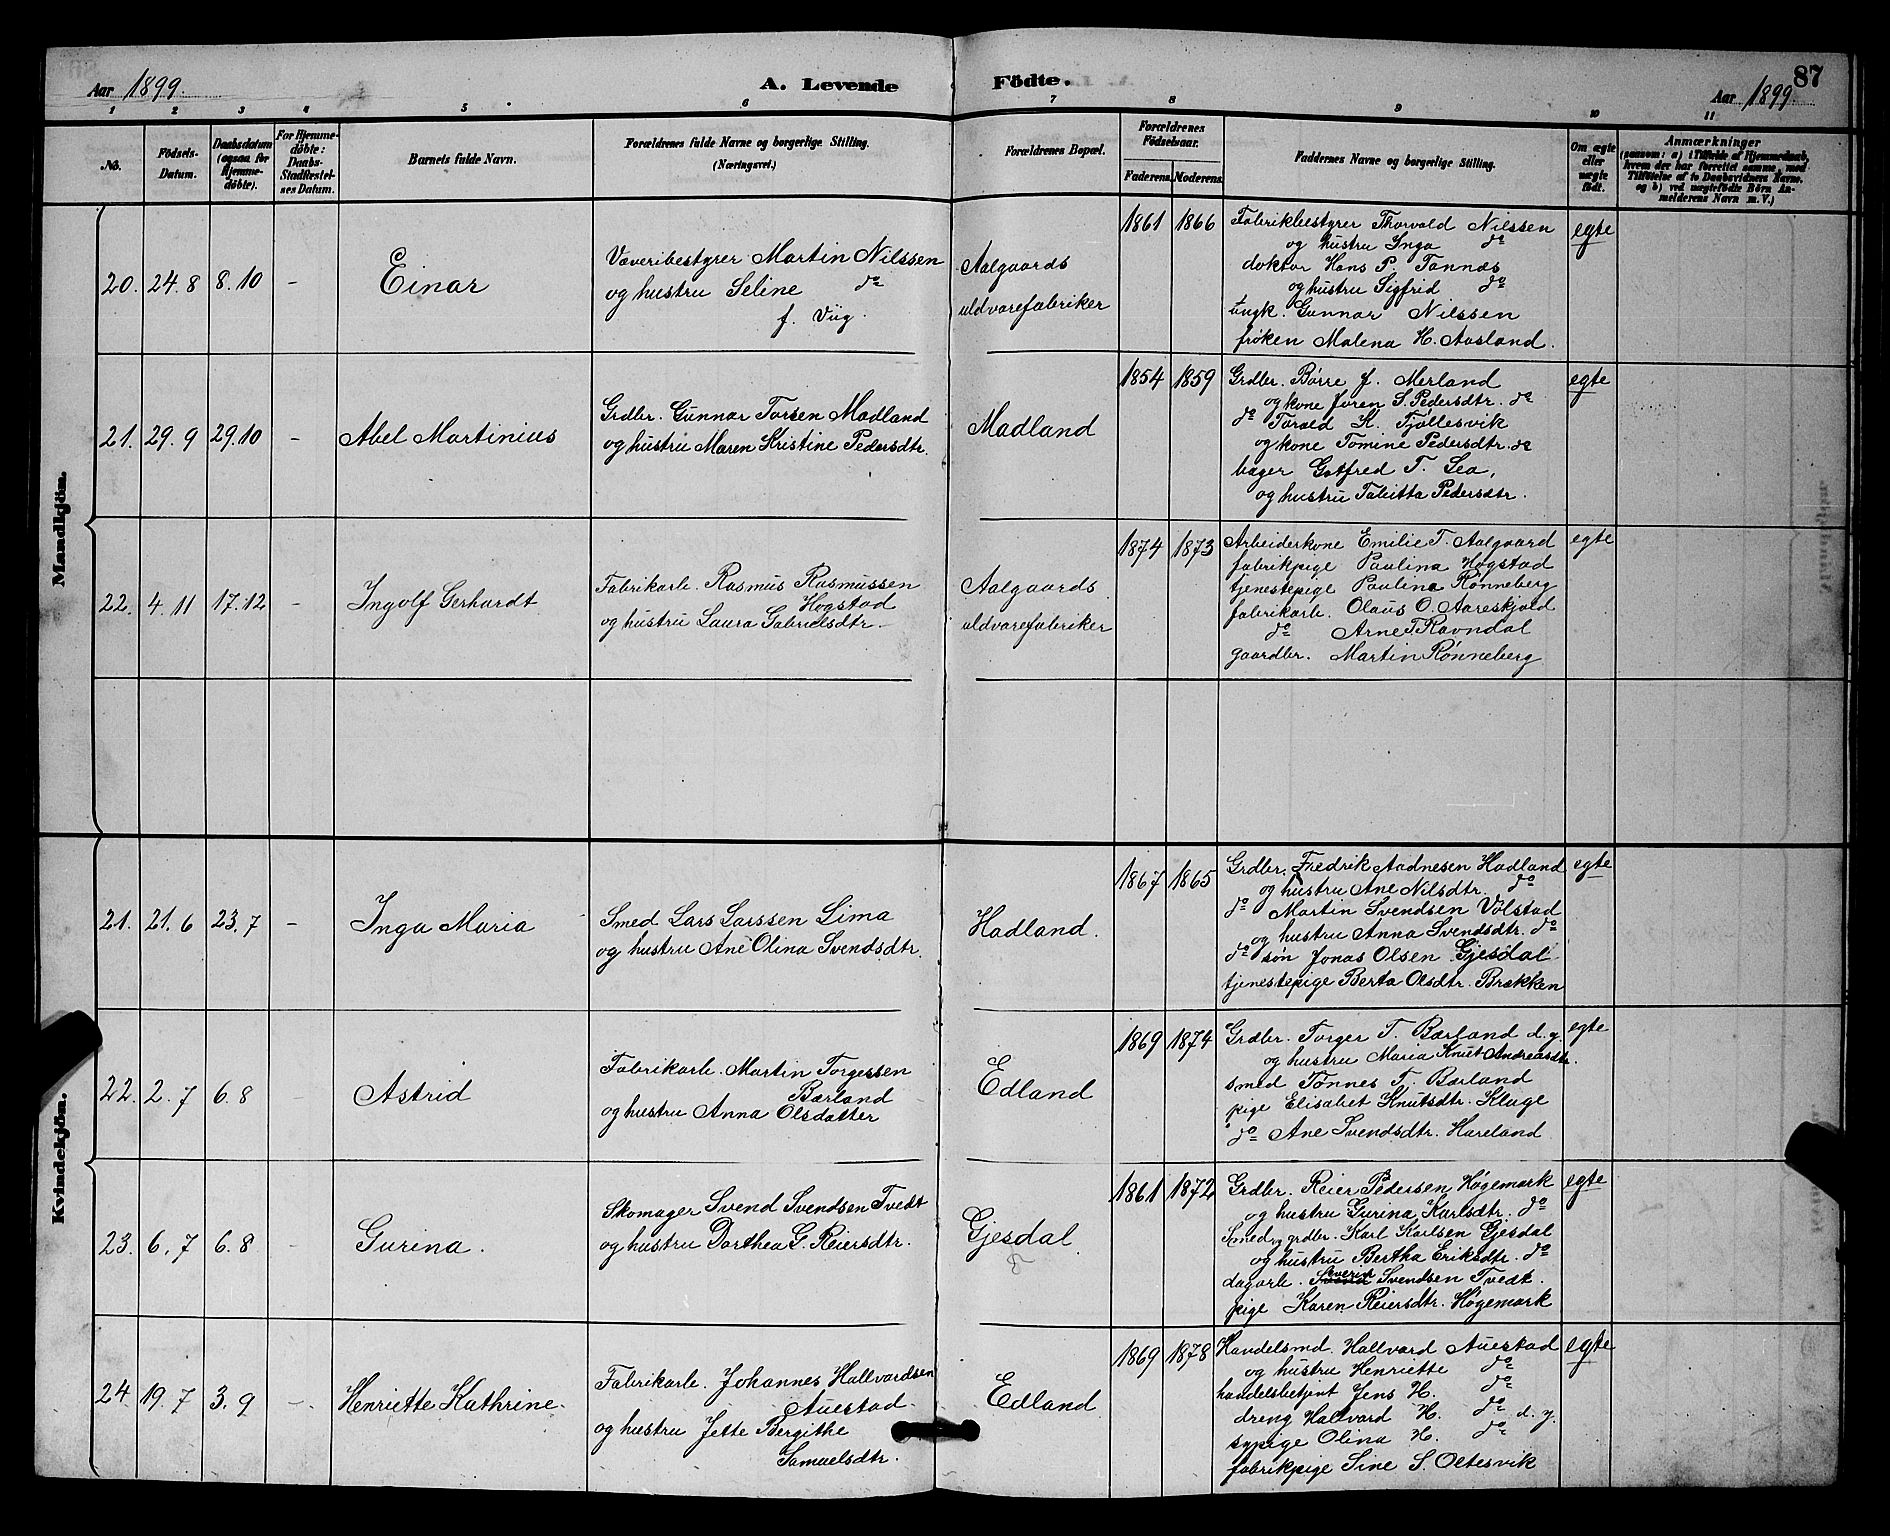 87
Aar 1899.
A. Levende Födte.
Aar 1899.
1 2 3 4 5 6 7 8 9 10 11
No.
Födsels-
Datum.
Daabsdatum
(ogsaa for
Hjemme-
döbte).
For Hjemme-
döbte:
Daabs-
Stadfæstel-
ses Datum.
Barnets fulde Navn.
Forældrenes fulde Navne og borgerlige Stilling.
(Næringsvei.)
Forældrenes Bopæl.
Forældrenes
Födselsaar.
Faderens. Moderens.
Faddernes Navne og borgerlige Stilling.
Om ægte
eller
uægte
födt.
Anmærkninger
(saasom: a) i Tilfælde af Hjemmedaab,
hvem der har forrettet samme, med
Tilföielse af to Daabsvidners Navne.
og b) ved uægtefödte Börn An-
melderens Navn m. V.)
Mandkjön.
20. 24.8 8.10 - Einar
Væveribestyrer Martin Nilssen
og hustru Seline do
f. Vüg.
Aalgaards
uldvarefabriker
1861 1866
Fabrikbestyrer Thorvald Nilssen
og hustru Inga do
doktor Hans P. Tannæs
og hustru Sigfrid do
ungk. Gunnar Nilssen
frøken Malena H. Aasland.
egte
21. 29.9 29.10 - Abel Martinius
Grdbr. Gunnar Torsen Madland
og hustru Maren Kristine Pedersdtr.
Madland
1854 1859
Grdbr. Børre J. Merland
og kone Joren S. Pedersdtr. do
do Torald K. Tjøllesvik
og kone Tomine Pedersdtr. do
bager Gotfred T. Lea,
og hustru Tabitta Pedersdtr.
egte
22. 4.11 17.12 - Ingolf Gerhardt
Fabrikarb. Rasmus Rasmussen
Høgstad
og hustru Laura Gabrielsdtr.
Aalgaards
uldvarefabriker
1874 1873
Arbeiderkone Emilie T. Aalgaard
fabrikpige Paulina Høgstad
tjenestepige Paulina Rønneberg
fabrikarb. Olaus O. Aareskjold
do Arne T. Ravndal
gaardbr. Martin Rønneberg
egte
Kvindekjön.
21. 21.6 23.7 - Inga Maria
Smed Lars Larssen Lima
og hustru Ane Olina Svendsdtr.
Hadland.
1867 1865
Grdbr. Fredrik Aadnesen Hadland
og hustru Ane Nilsdtr. do
do Martin Svendsen Volstad
og hustru Anna Svendsdtr. do
do søn Jonas Olsen Gjesdal
tjenestepige Berta Olsdtr. Brekken
egte
22. 2.7 6.8 - Astrid
Fabrikarb. Martin Torgersen
Bærland
og hustru Anna Olsdatter
Edland
1869 1874
Grdbr. Torger T. Bærland d.y.
og hustru Maria Knut Andreasdtr.
smed Tønnes T. Bærland
pige Elisabet Knutsdtr. Kluge
do Ane Svendsdtr. Hareland
egte
23. 6.7 6.8 - Gurina.
Skomager Svend Svendsen Tvedt
og hustru Dorthea G. Reiersdtr.
Gjesdal
1861 1872
Grdbr. Reier Pedersen Høgemark
og hustru Gurina Karlsdtr. do
Smed og grdbr. Karl Karlsen Gjesdal
og hustru Bertha Eriksdtr. do
dagarb. Severin Svendsen Tvedt.
pige Karen Reiersdtr. Høgemark
egte
24. 19.7 3.9 - Henriette Kathrine.
Fabrikarb. Johannes Hallvardsen
Auestad.
og hustru Jette Bergithe
Samuelsdtr.
Edland
1869 1878
Handelsmd. Hallvard Auestad
og hustru Henriette do
handelsbetjent Jens H. do
dreng Hallvard H. do d.y.
sypige Olina H. do
fabrikpige Sine S. Oltesvik
egte